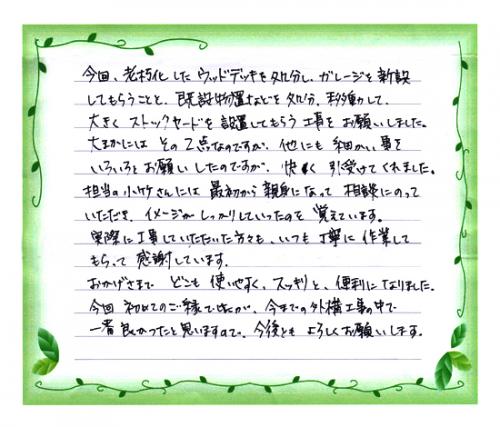 今回、老朽化したウッドデッキを処分し、ガレージを新設
してもらうことと、既設物置などを処分、移動して、
大きくストックヤードを設置してもらう工事をお願いしました。
大まかにはその2点なのですが、他にも細かい事を
いろいろとお願いしたのですが、快く引受けてくれました。
担当の小竹さんには最初から親身になって相談にのって
いただき、イメージがしっかりしていったのを覚えています。
実際に工事していただいた方々も、いつも丁寧に作業して
もらって感謝しています。
おかげさまでどこも使いやすく、スッキリと、便利になりました。
今回初めてのご縁でしたが、今までの外構工事の中で
一番良かったと思いますので、今後ともよろしくお願いします。